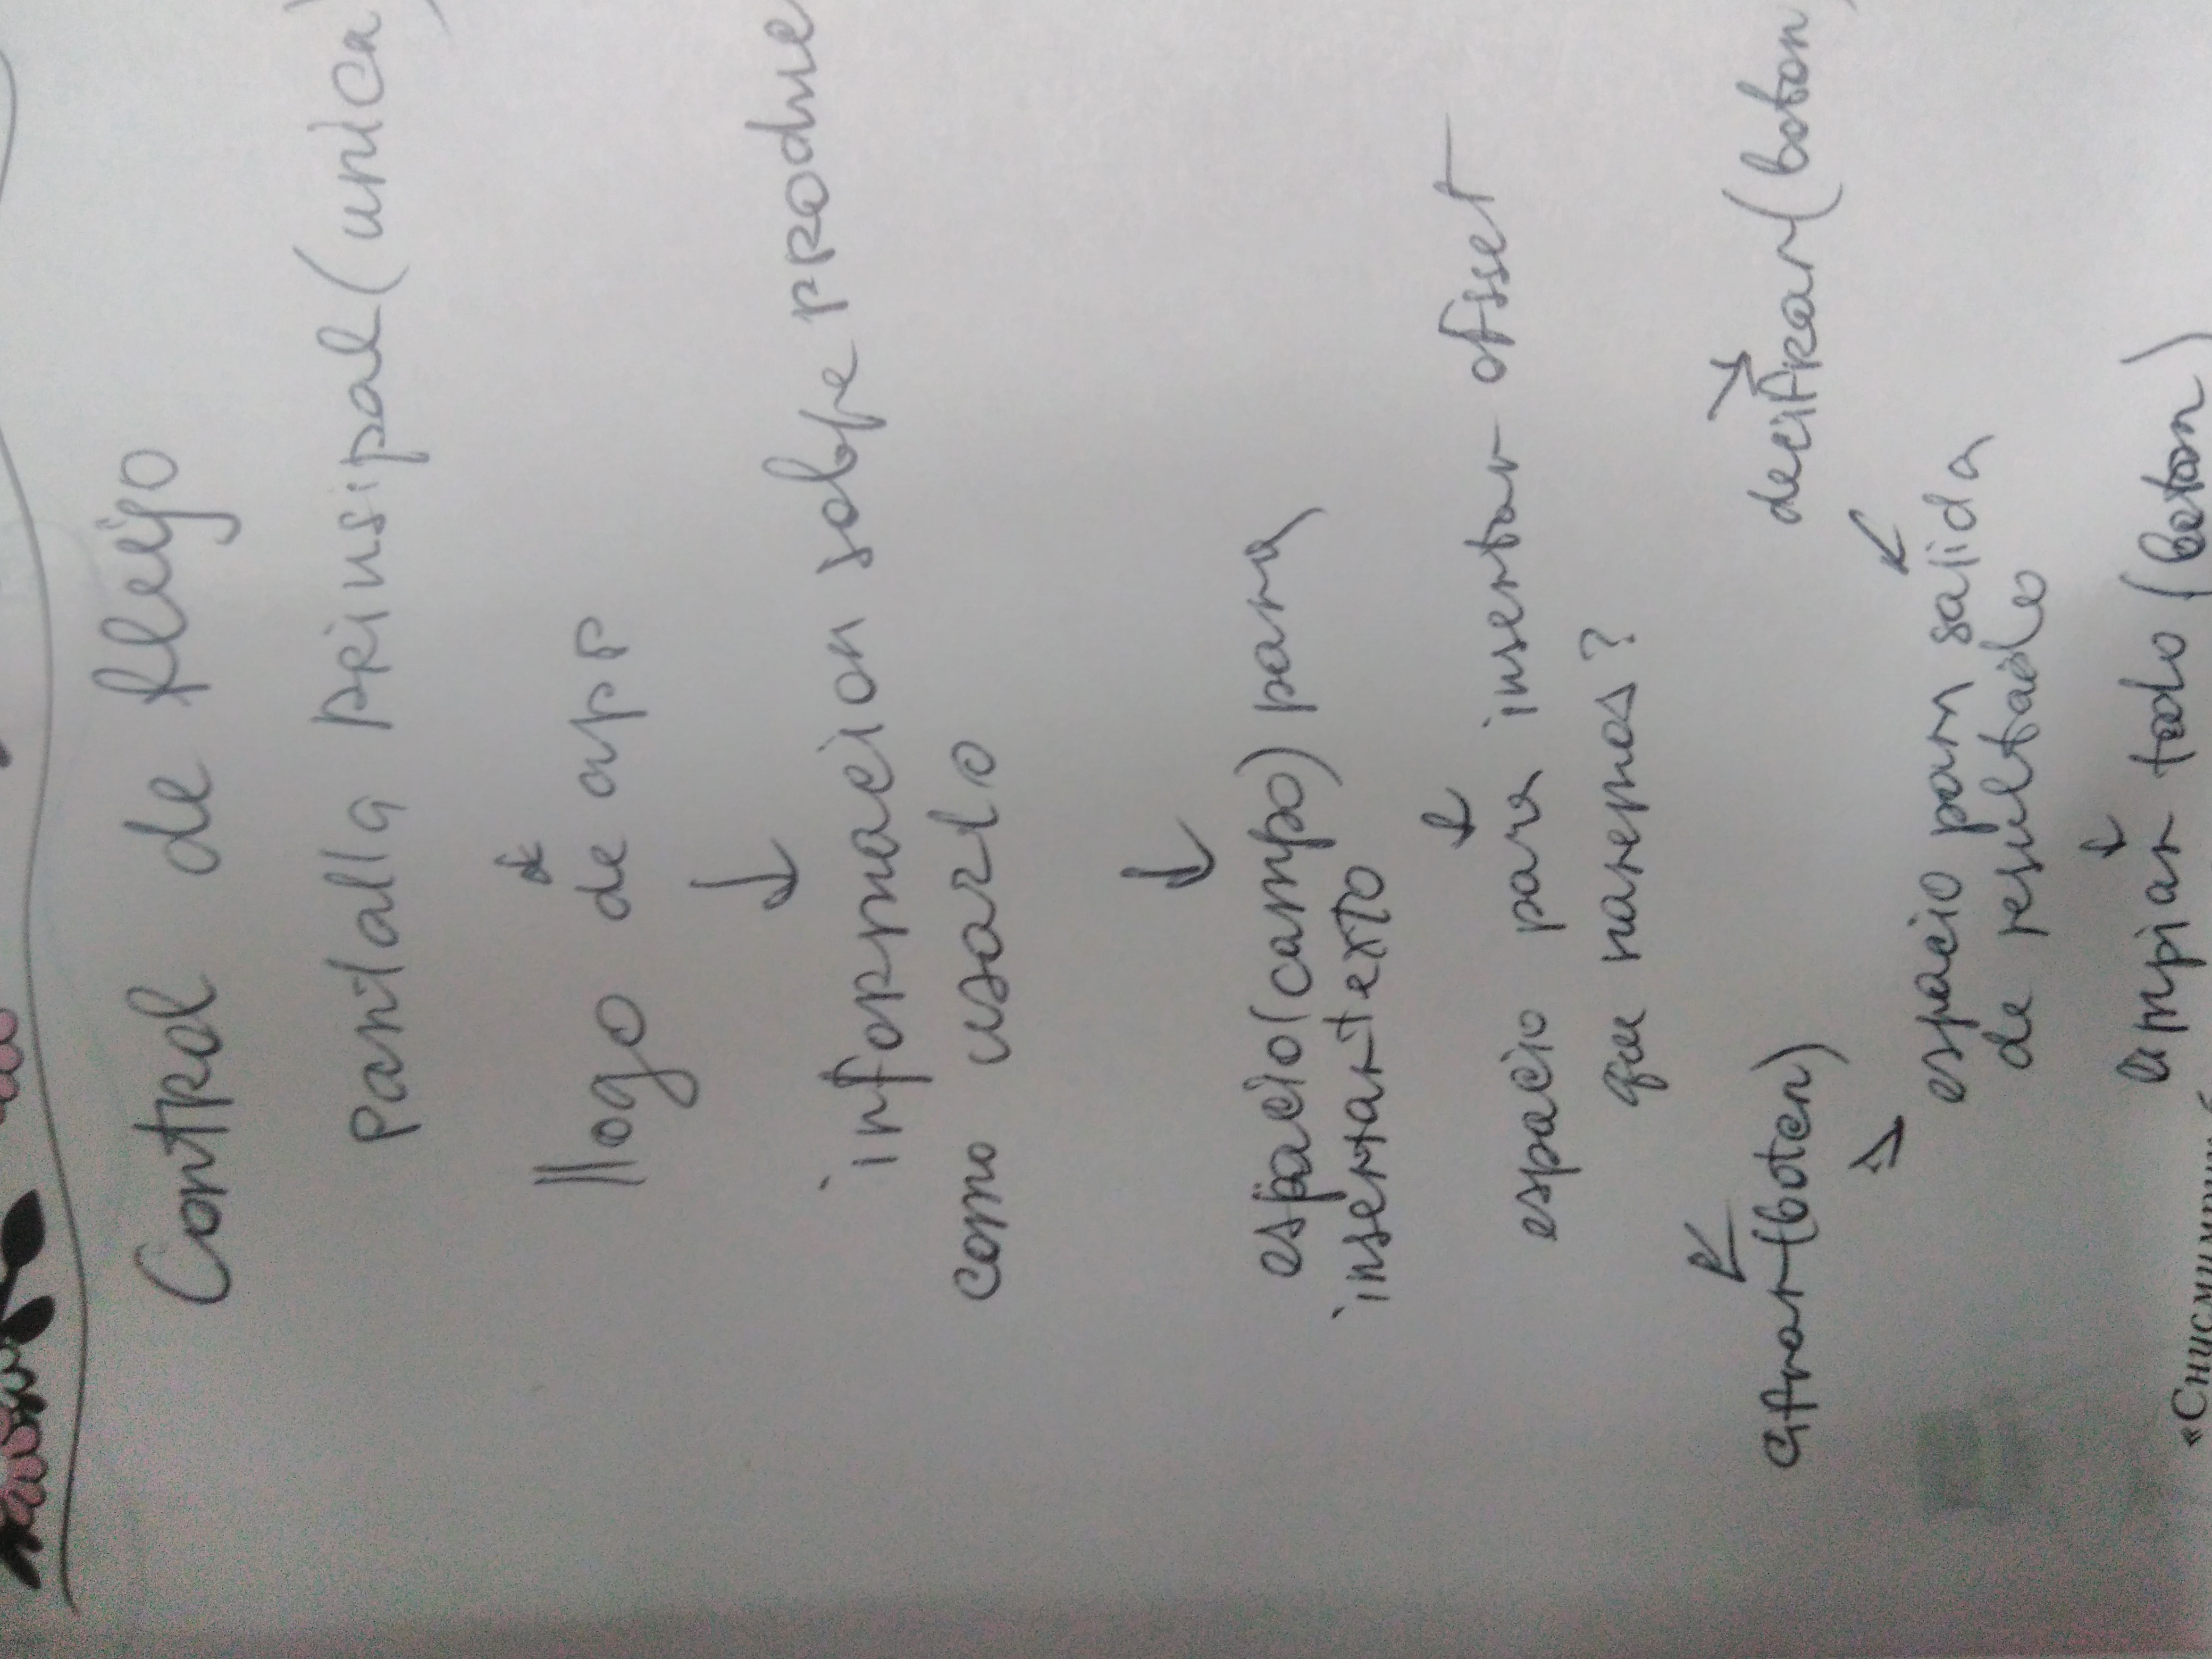 Control de flujo
Pantalla prinsipal (unica)
llogo de app
informacion sobre produc
como usarlo
espacio (campo) para
insertar texto
espacio para insertar ofset
que haremos?
cifrar (boton)
decifrar (boton
espacio para salida
de resultado
limpiar todo (boton)